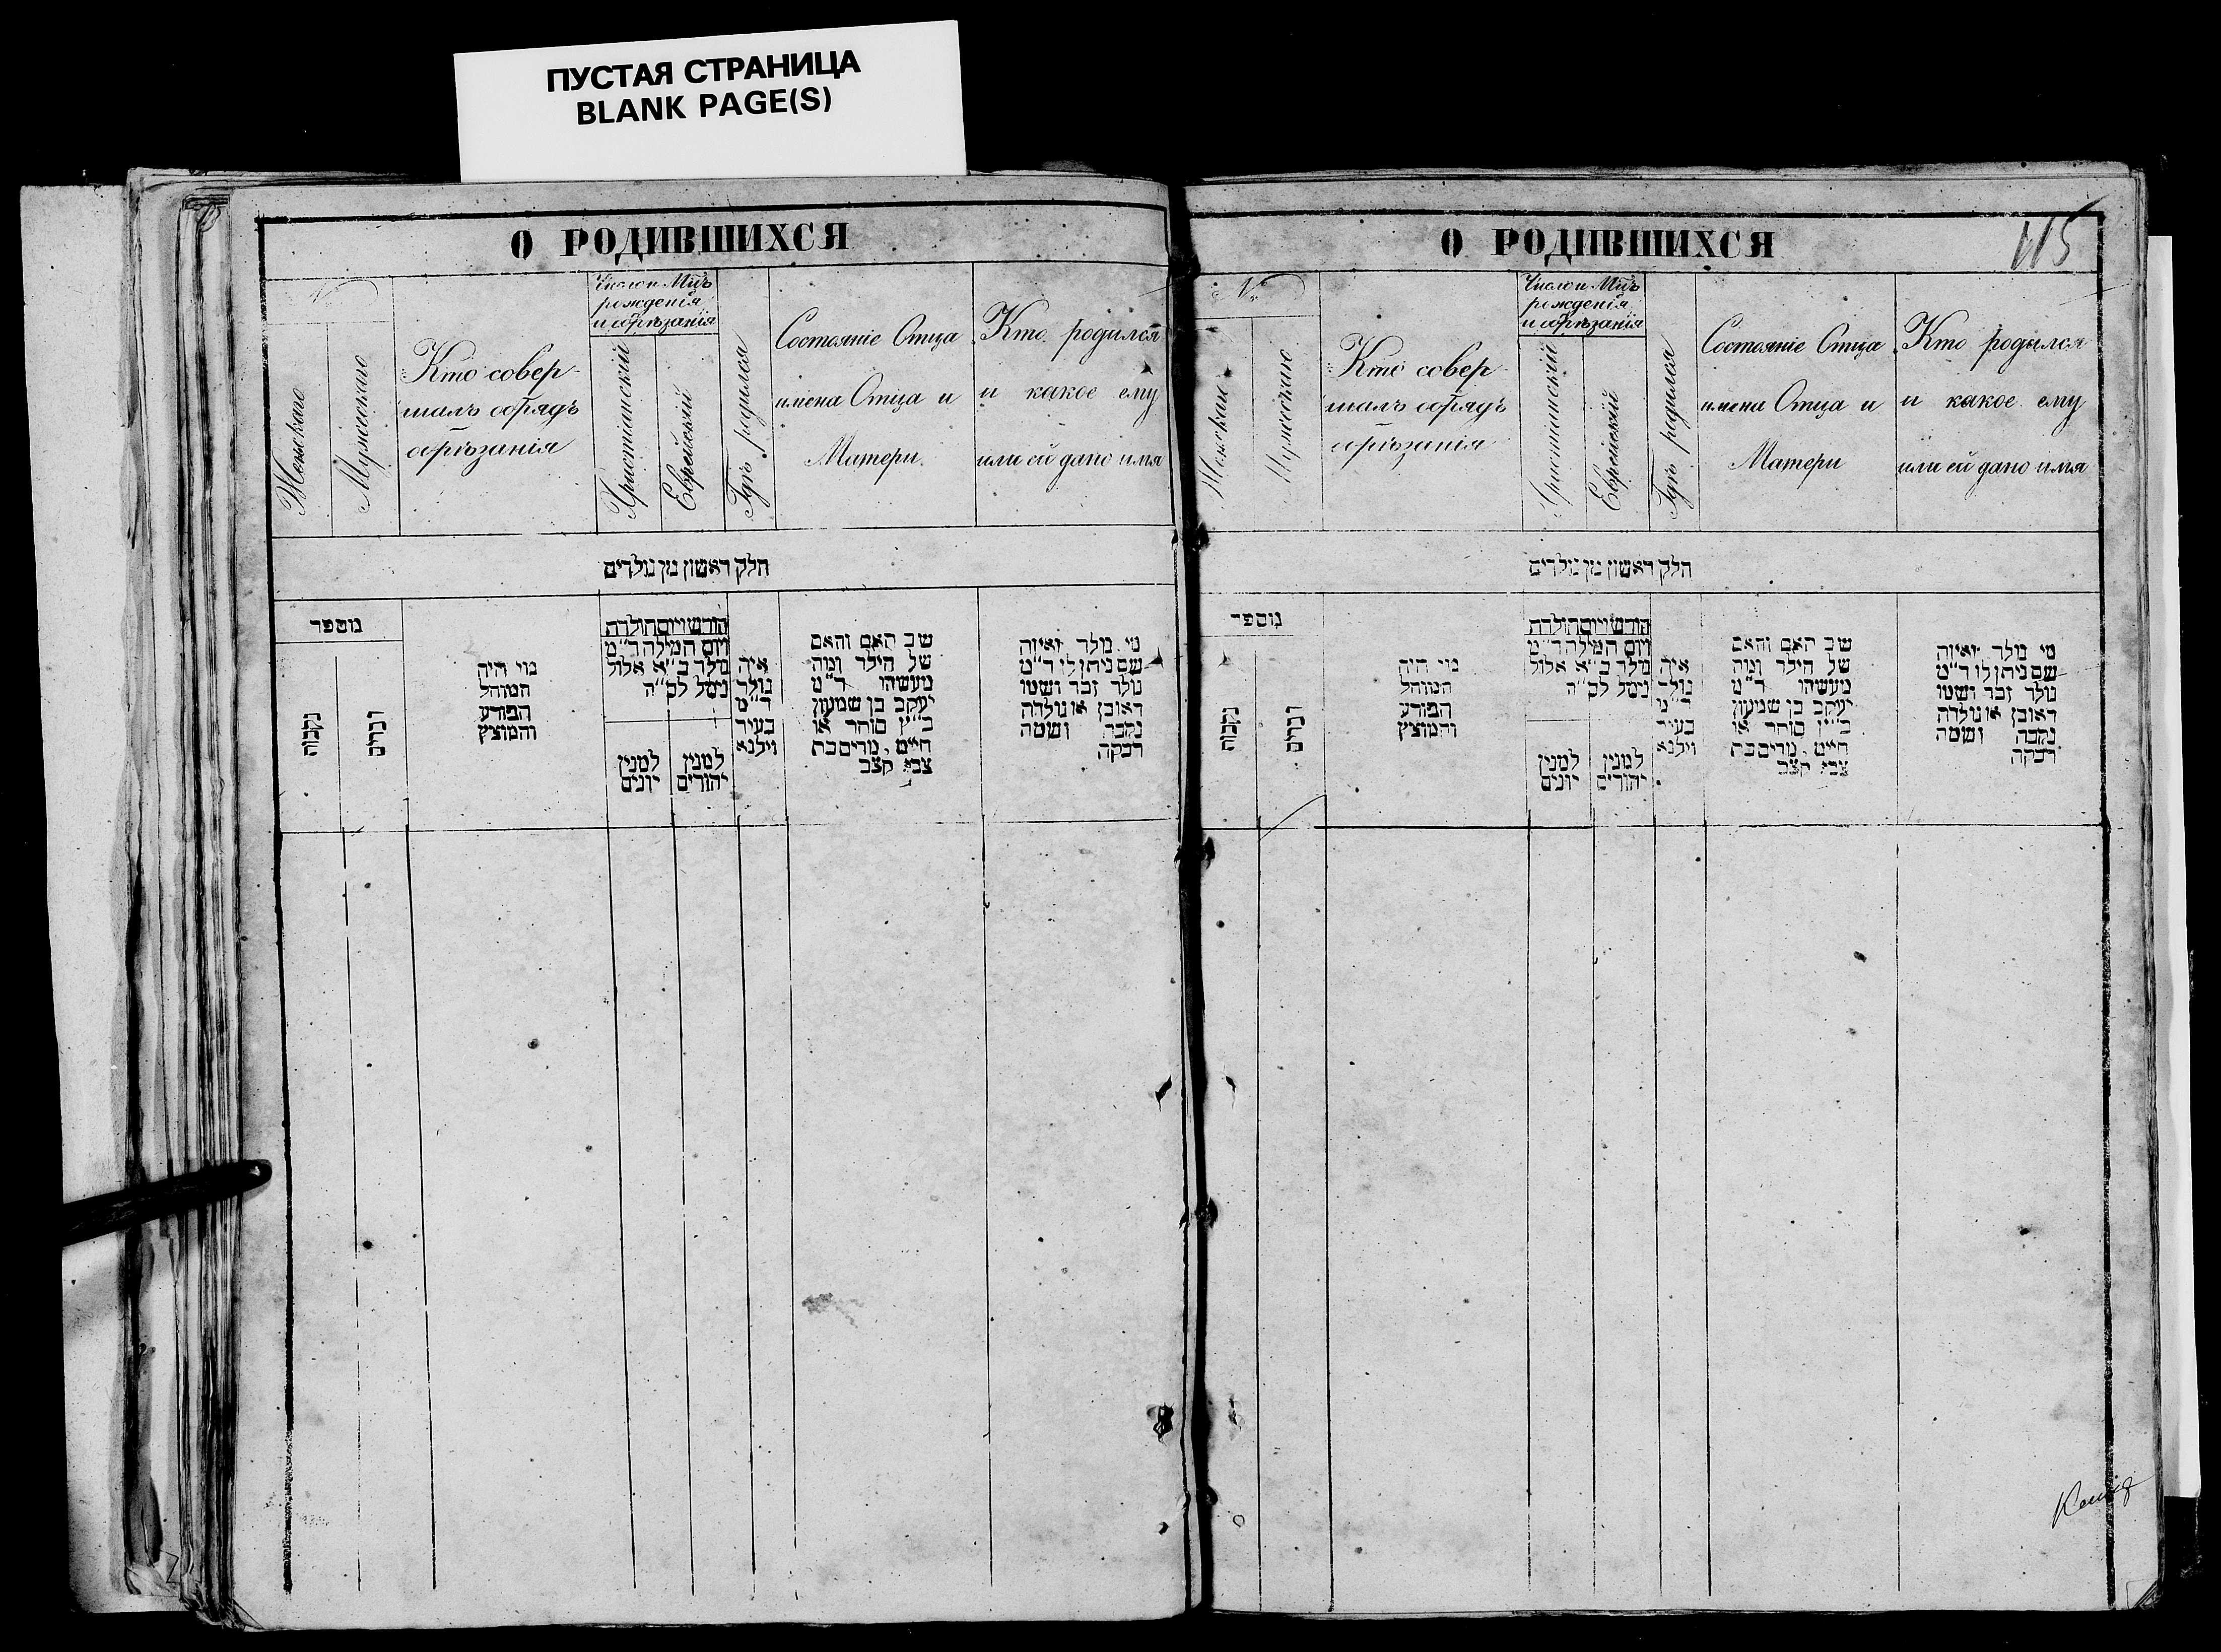 ПУСТАЯ СТРАНИЦА
BLANK PAGE(S)
О РОДИВШИХСЯ
№
Женскаго
Мужескаго
Кто совер-
шалъ обрядъ
обрѣзанія
Число и Мцъ
рожденія
и обрѣзанія
Христіанскій
Еврейскій
Гдѣ родился
Состояніе Отца
имена Отца и
Матери.
Кто родился
и какое ему
или ей дано имя
חלק ראשון מן נולדים
מספר
נקבות
זכרים
מי היה
המוהל
הפורע
והמוצץ
חודש ויום הולדת
ויום המילה ד״מ
נולד ב״א אלול
נימל לס״ה
למנין
יונים
למנין
יהודים
איה
נולד
ד״מ
בעיר
וילנא
שב האם והאם
של הילד ומה
מעשהו ד״מ
יעקב בן שמעון
כ״ץ סוחר או
חייט, מרים בת
צבי קצב
מי נולד ואיזה
שם ניתן לו ד״מ
נולד זכר ושמו
ראובן או נולדה
נקבה ושמה
רבקה
О РОДИВШИХСЯ
115
№
Женскаго
Мужескаго
Кто совер-
шалъ обрядъ
обрѣзанія
Число и Мцъ
рожденія
и обрѣзанія
Христіанскій
Еврейскій
Гдѣ родился
Состояніе Отца
имена Отца и
Матери
Кто родился
и какое ему
или ей дано имя
חלק ראשון מן נולדים
מספר
נקבות
זכרים
מי היה
המוהל
הפורע
והמוצץ
חודש ויום הולדת
ויום המילה ד״מ
נולד ב״א אלול
נימל לס״ה
למנין
יונים
למנין
יהודים
איה
נולד
ד״מ
בעיר
וילנא
שב האם והאם
של הילד ומה
מעשהו ד״מ
יעקב בן שמעון
כ״ץ סוחר או
חייט, מרים בת
צבי קצב
מי נולד ואיזה
שם ניתן לו ד״מ
נולד זכר ושמו
ראובן או נולדה
נקבה ושמה
רבקה